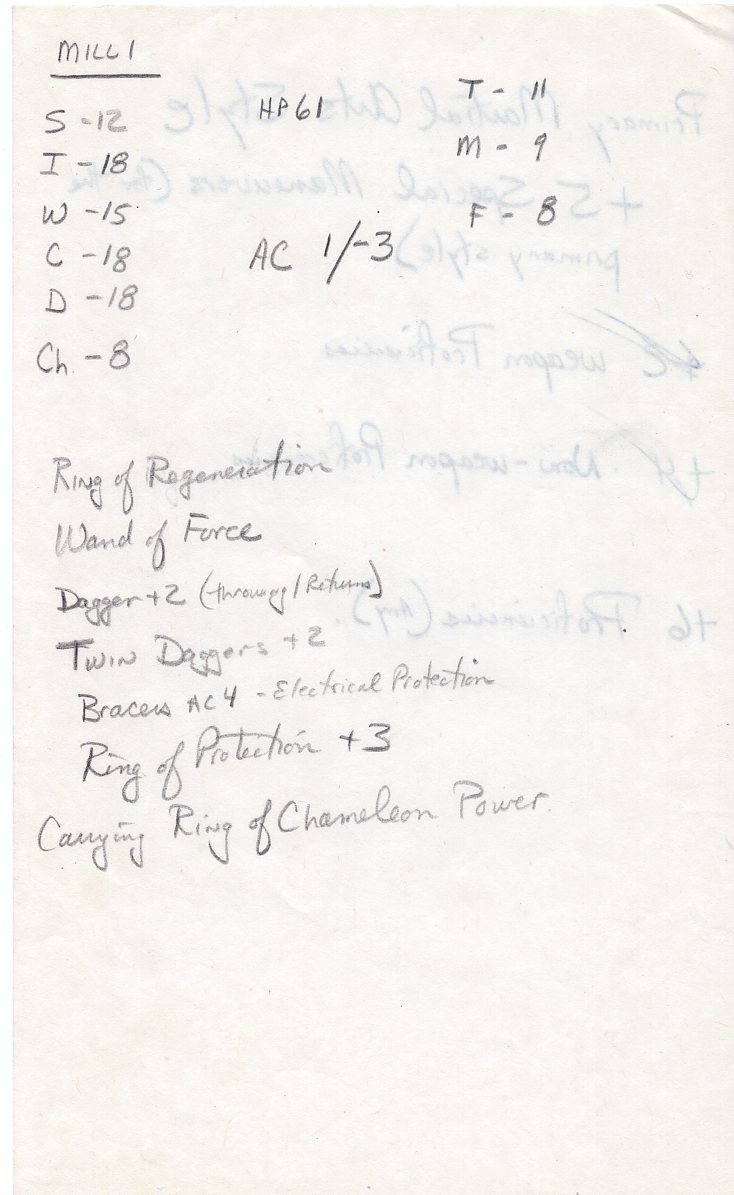 MILLI
S - 12
I - 18
W - 15
C - 18
D - 18
Ch. - 8
HP 61
AC 1/-3
T - 11
M - 9
F - 8
Ring of Regeneration
Wand of Force
Dagger +2 (throwing / Returns)
Twin Daggers +2
Bracers AC4 - Electrical Protection
Ring of Protection +3
Carrying Ring of Chameleon Power.
Primary Martial Arts Style
+5 Special Maneuvers (for the
primary style)
weapon Proficiencies
+4 Non-weapon Proficiencies
+6 Proficiencies (Any).